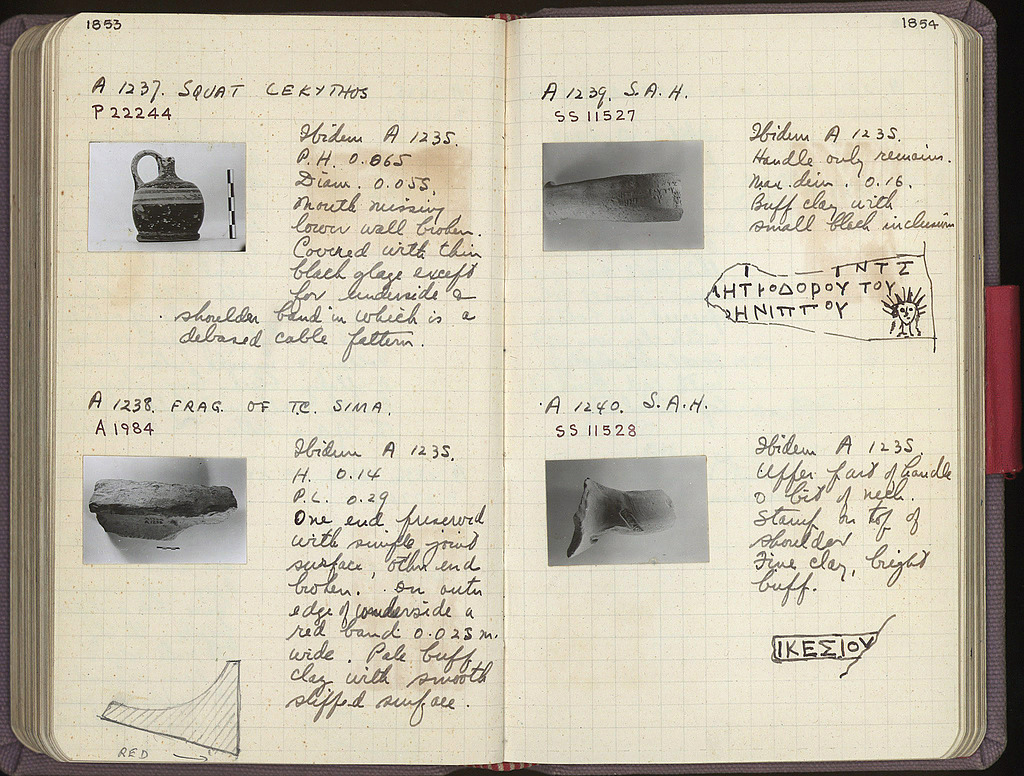 1853
A 1237. SQUAT LEKYTHOS
P 22244
Ibidem A 1235.
P.H. 0.065
Diam. 0.055.
Mouth missing
lower wall broken.
Covered with thin
black glaze except
for underside &
shoulder band in which is a
debased cable pattern.
A 1238. FRAG. OF T.C. SIMA.
A 1984
Ibidem A 1235.
H. 0.14
P.L. 0.29
One end preserved
with simple joint
surface, other end
broken. On outer
edge of underside a
red band 0.025 m.
wide. Pale buff
clay with smooth
slipped surface.
RED
1854
A 1239. S.A.H.
SS 11527
Ibidem A 1235.
Handle only remains.
Max. dim. 0.16.
Buff clay with
small black inclusions
ΝΤΣ
ΗΤΡΟΔΟΡΟΥ ΤΟΥ
ΗΝΙΠΠΟΥ
A 1240. S.A.H.
SS 11528
Ibidem A 1235.
Upper part of handle
& bit of neck.
Stamp on top of
shoulder
Fine clay, bright
buff.
ΙΚΕΣΙΟΥ